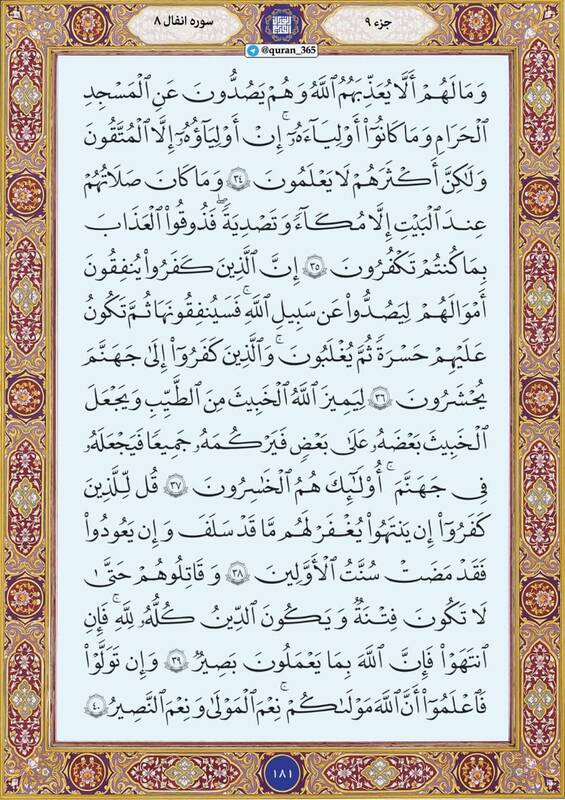 جزء ۹
سوره انفال ۸
@quran_365
وَمَا لَهُمْ أَلَّا يُعَذِّبَهُمُ ٱللَّهُ وَهُمْ يَصُدُّونَ عَنِ ٱلْمَسْجِدِ
ٱلْحَرَامِ وَمَا كَانُوٓا۟ أَوْلِيَآءَهُۥٓ ۚ إِنْ أَوْلِيَآؤُهُۥٓ إِلَّا ٱلْمُتَّقُونَ
وَلَٰكِنَّ أَكْثَرَهُمْ لَا يَعْلَمُونَ ۳۴ وَمَا كَانَ صَلَاتُهُمْ
عِندَ ٱلْبَيْتِ إِلَّا مُكَآءً وَتَصْدِيَةً ۚ فَذُوقُوا۟ ٱلْعَذَابَ
بِمَا كُنتُمْ تَكْفُرُونَ ۳۵ إِنَّ ٱلَّذِينَ كَفَرُوا۟ يُنفِقُونَ
أَمْوَالَهُمْ لِيَصُدُّوا۟ عَن سَبِيلِ ٱللَّهِ ۚ فَسَيُنفِقُونَهَا ثُمَّ تَكُونُ
عَلَيْهِمْ حَسْرَةً ثُمَّ يُغْلَبُونَ ۗ وَٱلَّذِينَ كَفَرُوٓا۟ إِلَىٰ جَهَنَّمَ
يُحْشَرُونَ ۳۶ لِيَمِيزَ ٱللَّهُ ٱلْخَبِيثَ مِنَ ٱلطَّيِّبِ وَيَجْعَلَ
ٱلْخَبِيثَ بَعْضَهُۥ عَلَىٰ بَعْضٍ فَيَرْكُمَهُۥ جَمِيعًا فَيَجْعَلَهُۥ
فِى جَهَنَّمَ ۚ أُو۟لَٰٓئِكَ هُمُ ٱلْخَٰسِرُونَ ۳۷ قُل لِّلَّذِينَ
كَفَرُوٓا۟ إِن يَنتَهُوا۟ يُغْفَرْ لَهُم مَّا قَدْ سَلَفَ وَإِن يَعُودُوا۟
فَقَدْ مَضَتْ سُنَّتُ ٱلْأَوَّلِينَ ۳۸ وَقَاتِلُوهُمْ حَتَّىٰ
لَا تَكُونَ فِتْنَةٌ وَيَكُونَ ٱلدِّينُ كُلُّهُۥ لِلَّهِ ۚ فَإِنِ
ٱنتَهَوْا۟ فَإِنَّ ٱللَّهَ بِمَا يَعْمَلُونَ بَصِيرٌ ۳۹ وَإِن تَوَلَّوْا۟
فَٱعْلَمُوٓا۟ أَنَّ ٱللَّهَ مَوْلَىٰكُمْ ۚ نِعْمَ ٱلْمَوْلَىٰ وَنِعْمَ ٱلنَّصِيرُ ۴۰
۱۸۱